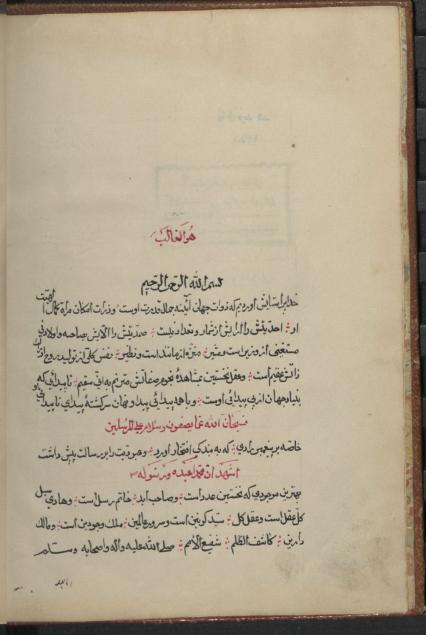 هو الغالب
بسم الله الرحمن الرحیم
خدایرا ستایش آوردیم که ذوات جهان آینه جمال قدرت اوست و ذرات امکان مرآة کمال
او احدیتش را از شمار و تعداد نیست صمدیتش را آلایش بصاحبه و اولاد نی
مستغنی از وزیر است و مشیر منزه از مانند است و نظیر نفس کلی از تولید
زاتش عقیم است و عقل نخستین بمشاهدهٔ نحو صفاتش مترنم به انی سقیم ناپیدائی که
بنیاد جهان از پی پیدائی اوست و با همه پیدائی پیدا و پنهان سرگشتهٔ پیدای ناپیدائی
سبحان الله عما یصفون و سلام علی المرسلین
خاصه بر پیغمبر رادی که به بندگی افتخار آورد و عبودیت را بر رسالت پیش داشت
اشهد ان محمدا عبده و رسوله
بهترین موجودی که نخستین عدد است و صاحب ابد خاتم رسل است و هادی سبل
کل عقل است و عقل کل سید کونین است و سرور عالمین ملک وجود بین است و مالک
دارین کاشف الظلم شفیع الامم صلی الله علیه و آله و اصحابه و سلم